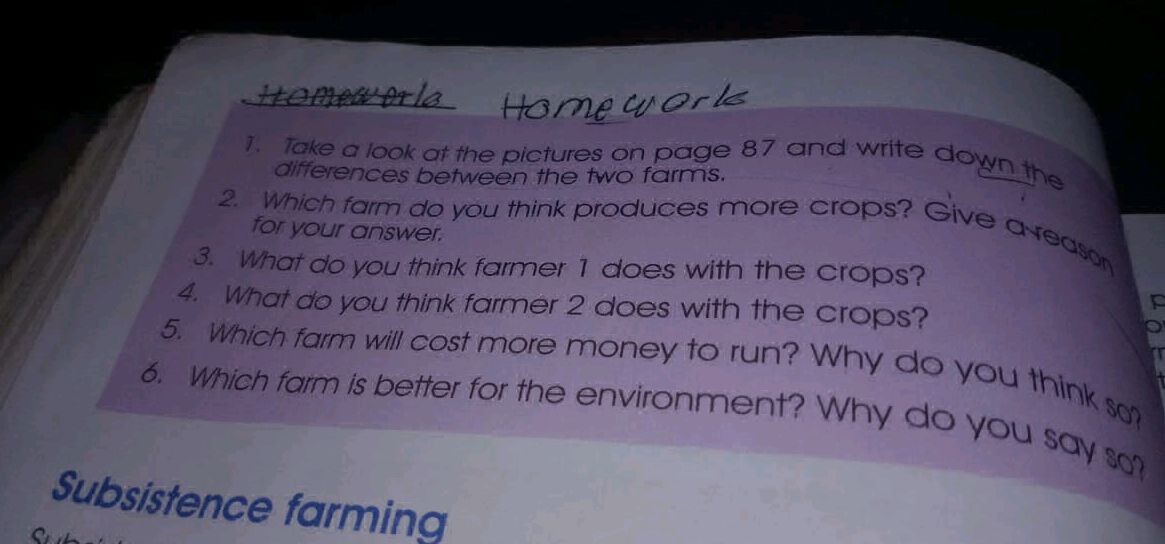 Homework Homework
1. Take a look at the pictures on page 87 and write down the
differences between the two farms.
2. Which farm do you think produces more crops? Give a reason
for your answer.
3. What do you think farmer 1 does with the crops?
4. What do you think farmer 2 does with the crops?
5. Which farm will cost more money to run? Why do you think so?
6. Which farm is better for the environment? Why do you say so?
Subsistence farming